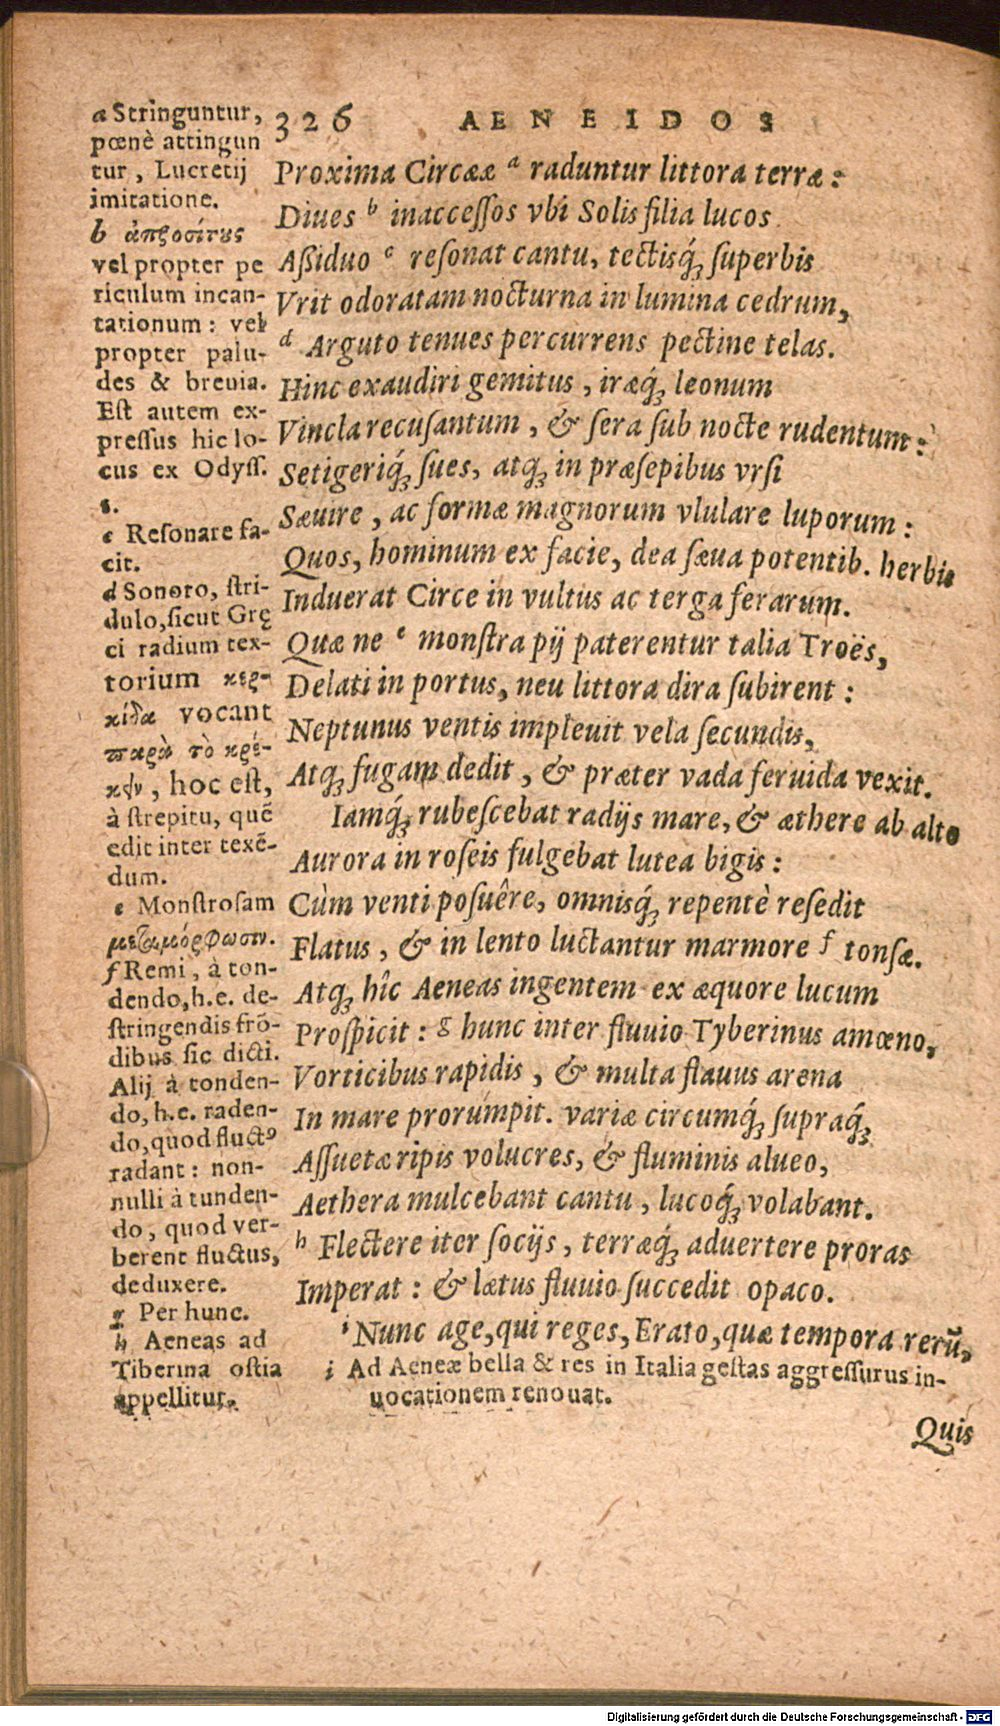 326 AENEIDOS
Proxima Circææ ᵃ raduntur littora terræ:
Diues ᵇ inaccessos vbi Solis filia lucos
Aßiduo ᶜ resonat cantu, tectisq́; superbis
Vrit odoratam nocturna in lumina cedrum,
ᵈ Arguto tenues percurrens pectine telas.
Hinc exaudiri gemitus, iræq́; leonum
Vincla recusantum, & sera sub nocte rudentum:
Setigeriq́; sues, atq; in præsepibus vrsi
Sæuire, ac formæ magnorum vlulare luporum:
Quos, hominum ex facie, dea sæua potentib. herbis
Induerat Circe in vultus ac terga ferarum.
Quæ ne ᵉ monstra pij paterentur talia Troës,
Delati in portus, neu littora dira subirent:
Neptunus ventis impleuit vela secundis,
Atq; fugam dedit, & præter vada feruida vexit.
Iamq́; rubescebat radijs mare, & æthere ab alto
Aurora in roseis fulgebat lutea bigis:
Cùm venti posuêre, omnisq́; repentè resedit
Flatus, & in lento luctantur marmore ᶠ tonsæ.
Atq; hîc Aeneas ingentem ex æquore lucum
Prospicit: ᵍ hunc inter fluuio Tyberinus amœno,
Vorticibus rapidis, & multa flauus arena
In mare prorumpit. variæ circumq́; supraq́;
Assuetæ ripis volucres, & fluminis alueo,
Aethera mulcebant cantu, lucoq́; volabant.
ʰ Flectere iter socijs, terræq́; aduertere proras
Imperat: & lætus fluuio succedit opaco.
ⁱ Nunc age, qui reges, Erato, quæ tempora rerū,
a Stringuntur,
pœnè attingun
tur, Lucretij
imitatione.
b ἀπροσίτους
vel propter pe
riculum incan-
tationum: vel
propter palu-
des & breuia.
Est autem ex-
pressus hic lo-
cus ex Odyss.
c Resonare fa-
cit.
d Sonoro, stri-
dulo, sicut Gre
ci radium tex-
torium κερ-
κίδα vocant
παρὰ τὸ κρέ-
κειν, hoc est,
à strepitu, quē
edit inter texē-
dum.
e Monstrosam
μεταμόρφωσιν.
f Remi, à ton-
dendo, h.e. de-
stringendis frō-
dibus sic dicti.
Alij à tonden-
do, h.e. raden-
do, quod fluctꝰ
radant: non-
nulli à tunden-
do, quod ver-
berent fluctus,
deduxere.
g Per hunc.
h Aeneas ad
Tiberina ostia
appellitur.
i Ad Aeneæ bella & res in Italia gestas aggressurus in-
uocationem renouat.
Quis
Digitalisierung gefördert durch die Deutsche Forschungsgemeinschaft - DFG